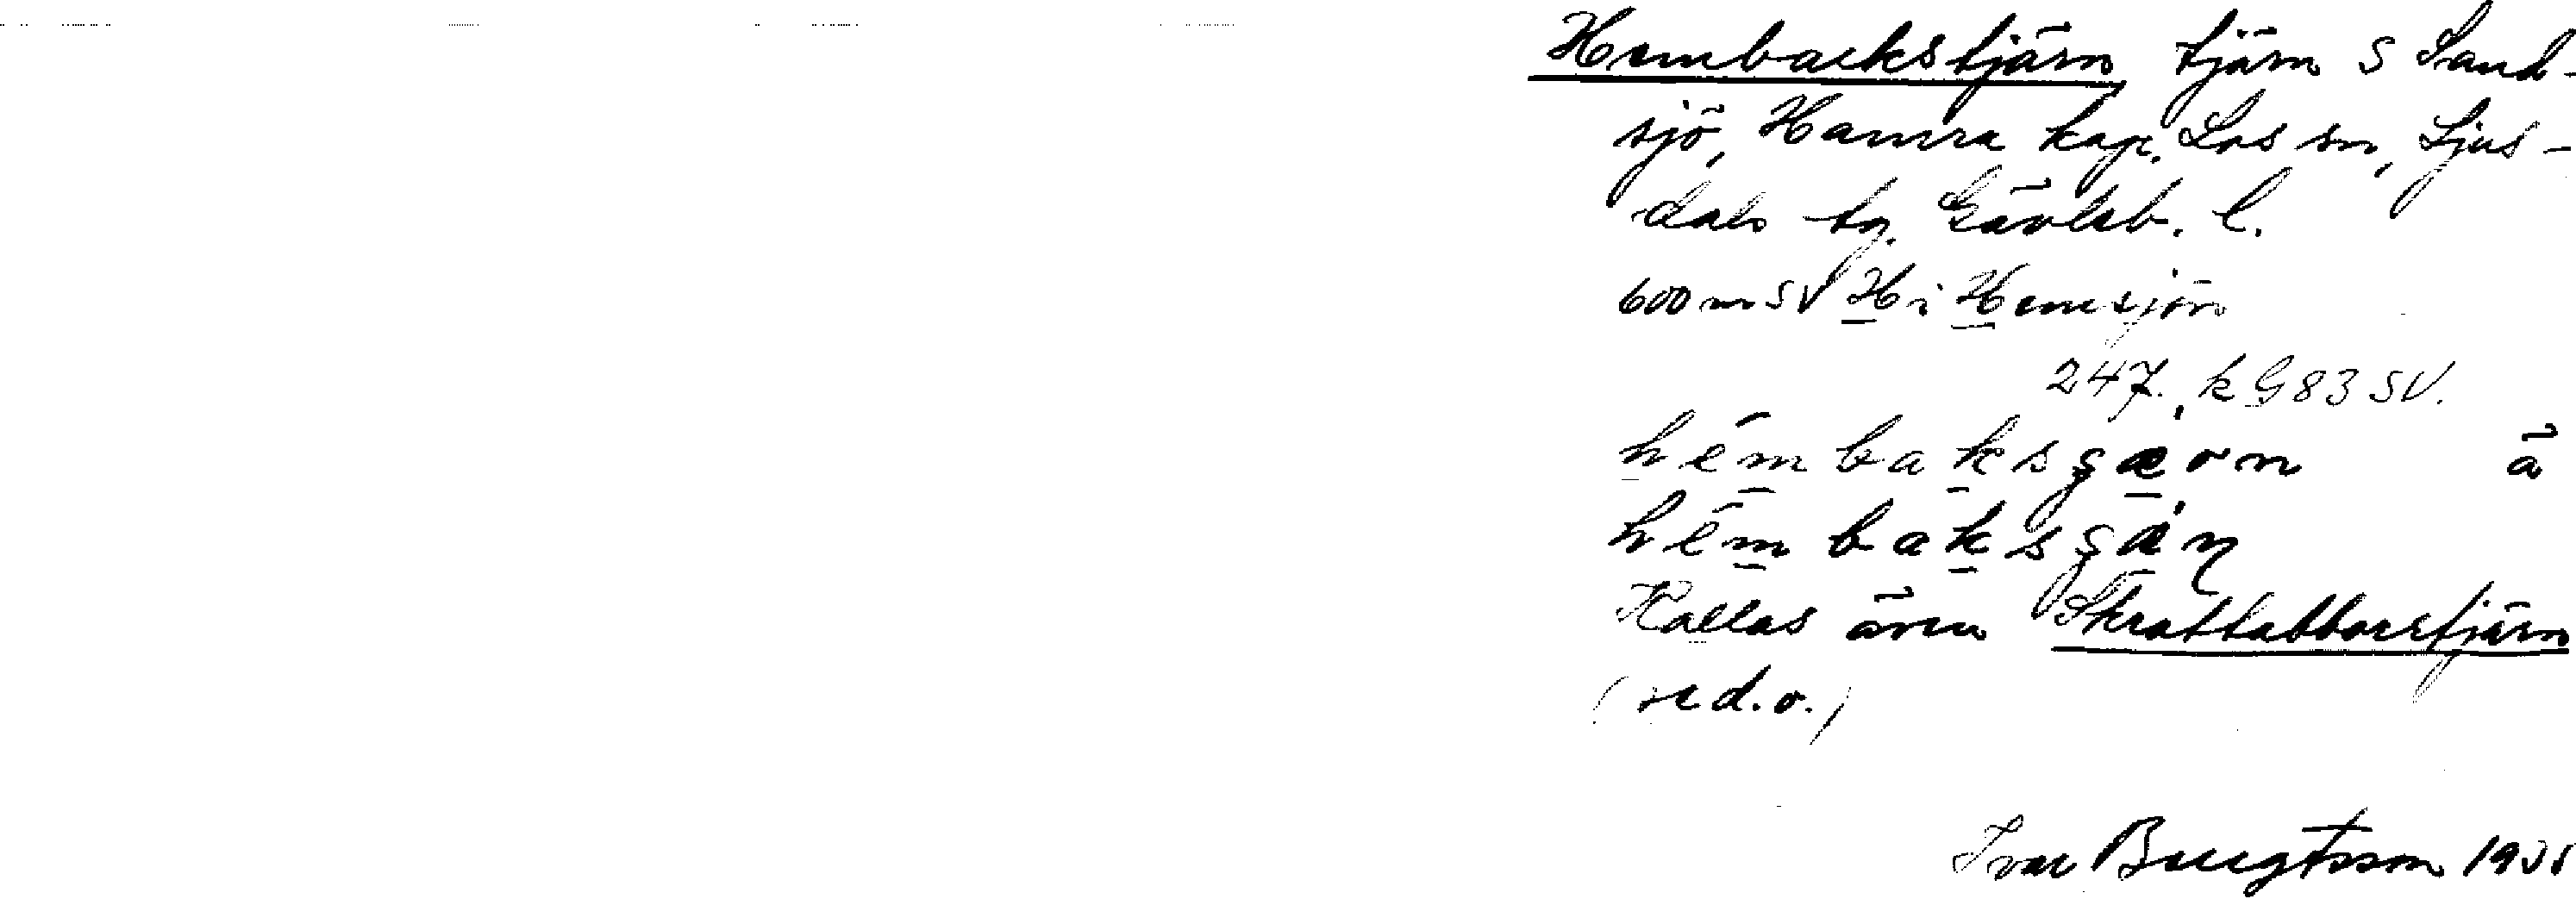 Hembackstjärn, tjärn S Sand-
sjö, Hamra kap. Los sn, Ljus-
dals tg. Gävleb. l.
600 m SV H i Hemsjön
247. k G 83 SV.
hémbaksʂæ̀rn ā
hémbaksʂàɳ
Kallas även Skrattabborrtjärn
(se d. o.)
Ivar Bengtsson